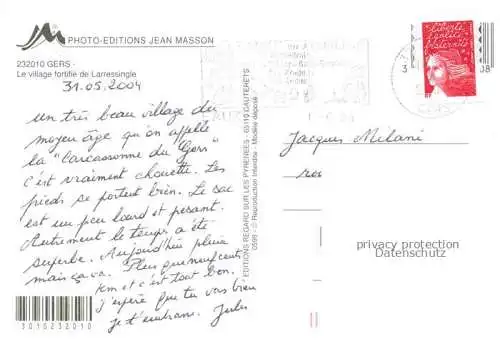 PHOTO-EDITIONS JEAN MASSON
232010 GERS -
Le village fortifié de Larressingle
31.05.2004
un très beau village du
moyen âge qu'on appelle
la "Carcassonne du Gers"
c'est vraiment chouette. Les
pieds se portent bien. Le sac
est un peu lourd et pesant.
Autrement le temps a été
superbe. Aujourd'hui pluie
mais ça va. Plus que neuf cents
km et c'est tout bon.
j'espère que tu vas bien
je t'embrasse. Jules
3010232010
EDITIONS REGARD SUR LES PYRENEES - 65110 CAUTERETS
0599 - © Reproduction Interdite - Modèle déposé
liberté
égalité
fraternité
RF
Jacques Milani
privacy protection
Datenschutz